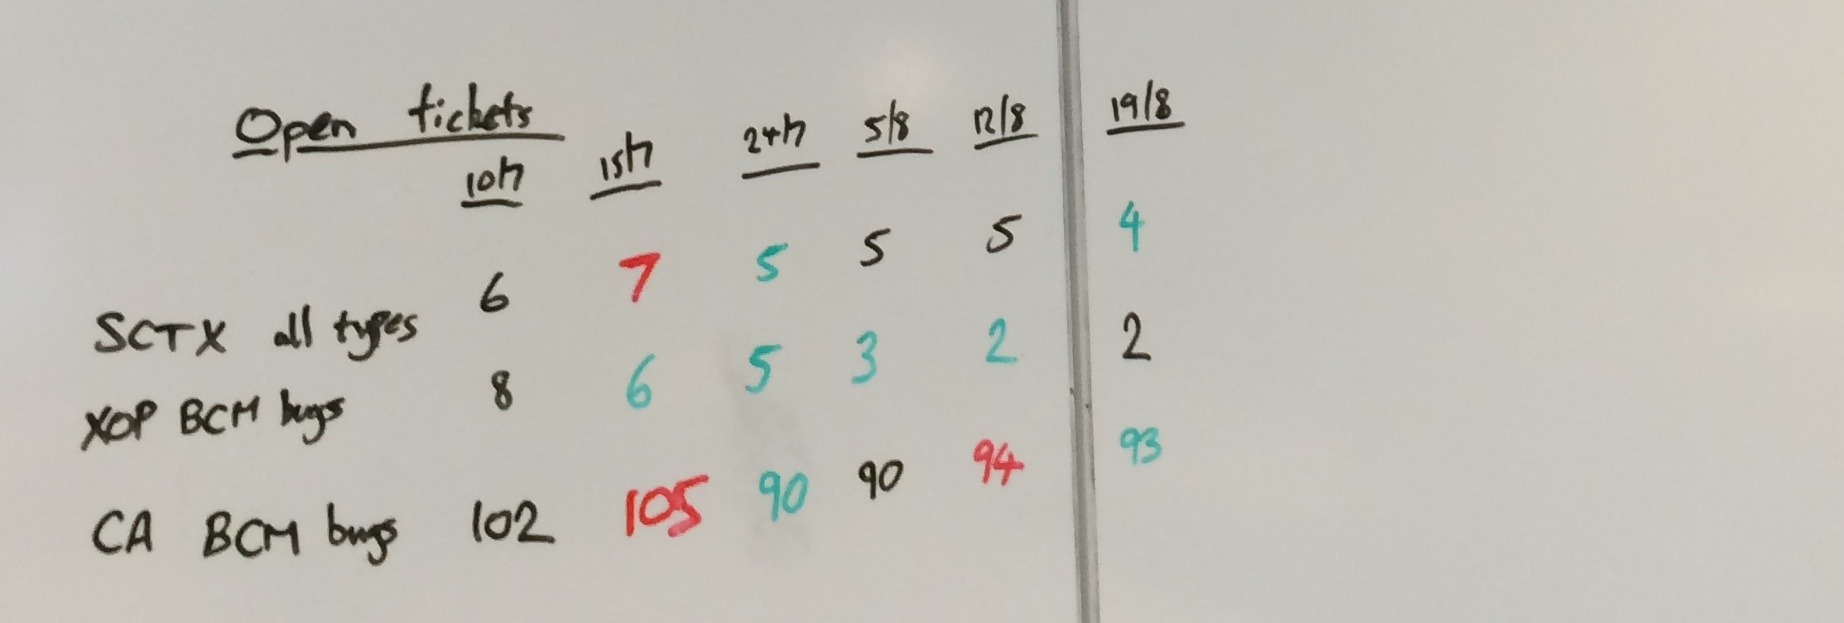 Open tickets
10/7 15/7 24/7 5/8 12/8 19/8
SCTX all types 6 7 5 5 5 4
XOP BCM bugs 8 6 5 3 2 2
CA BCM bugs 102 105 90 90 94 93